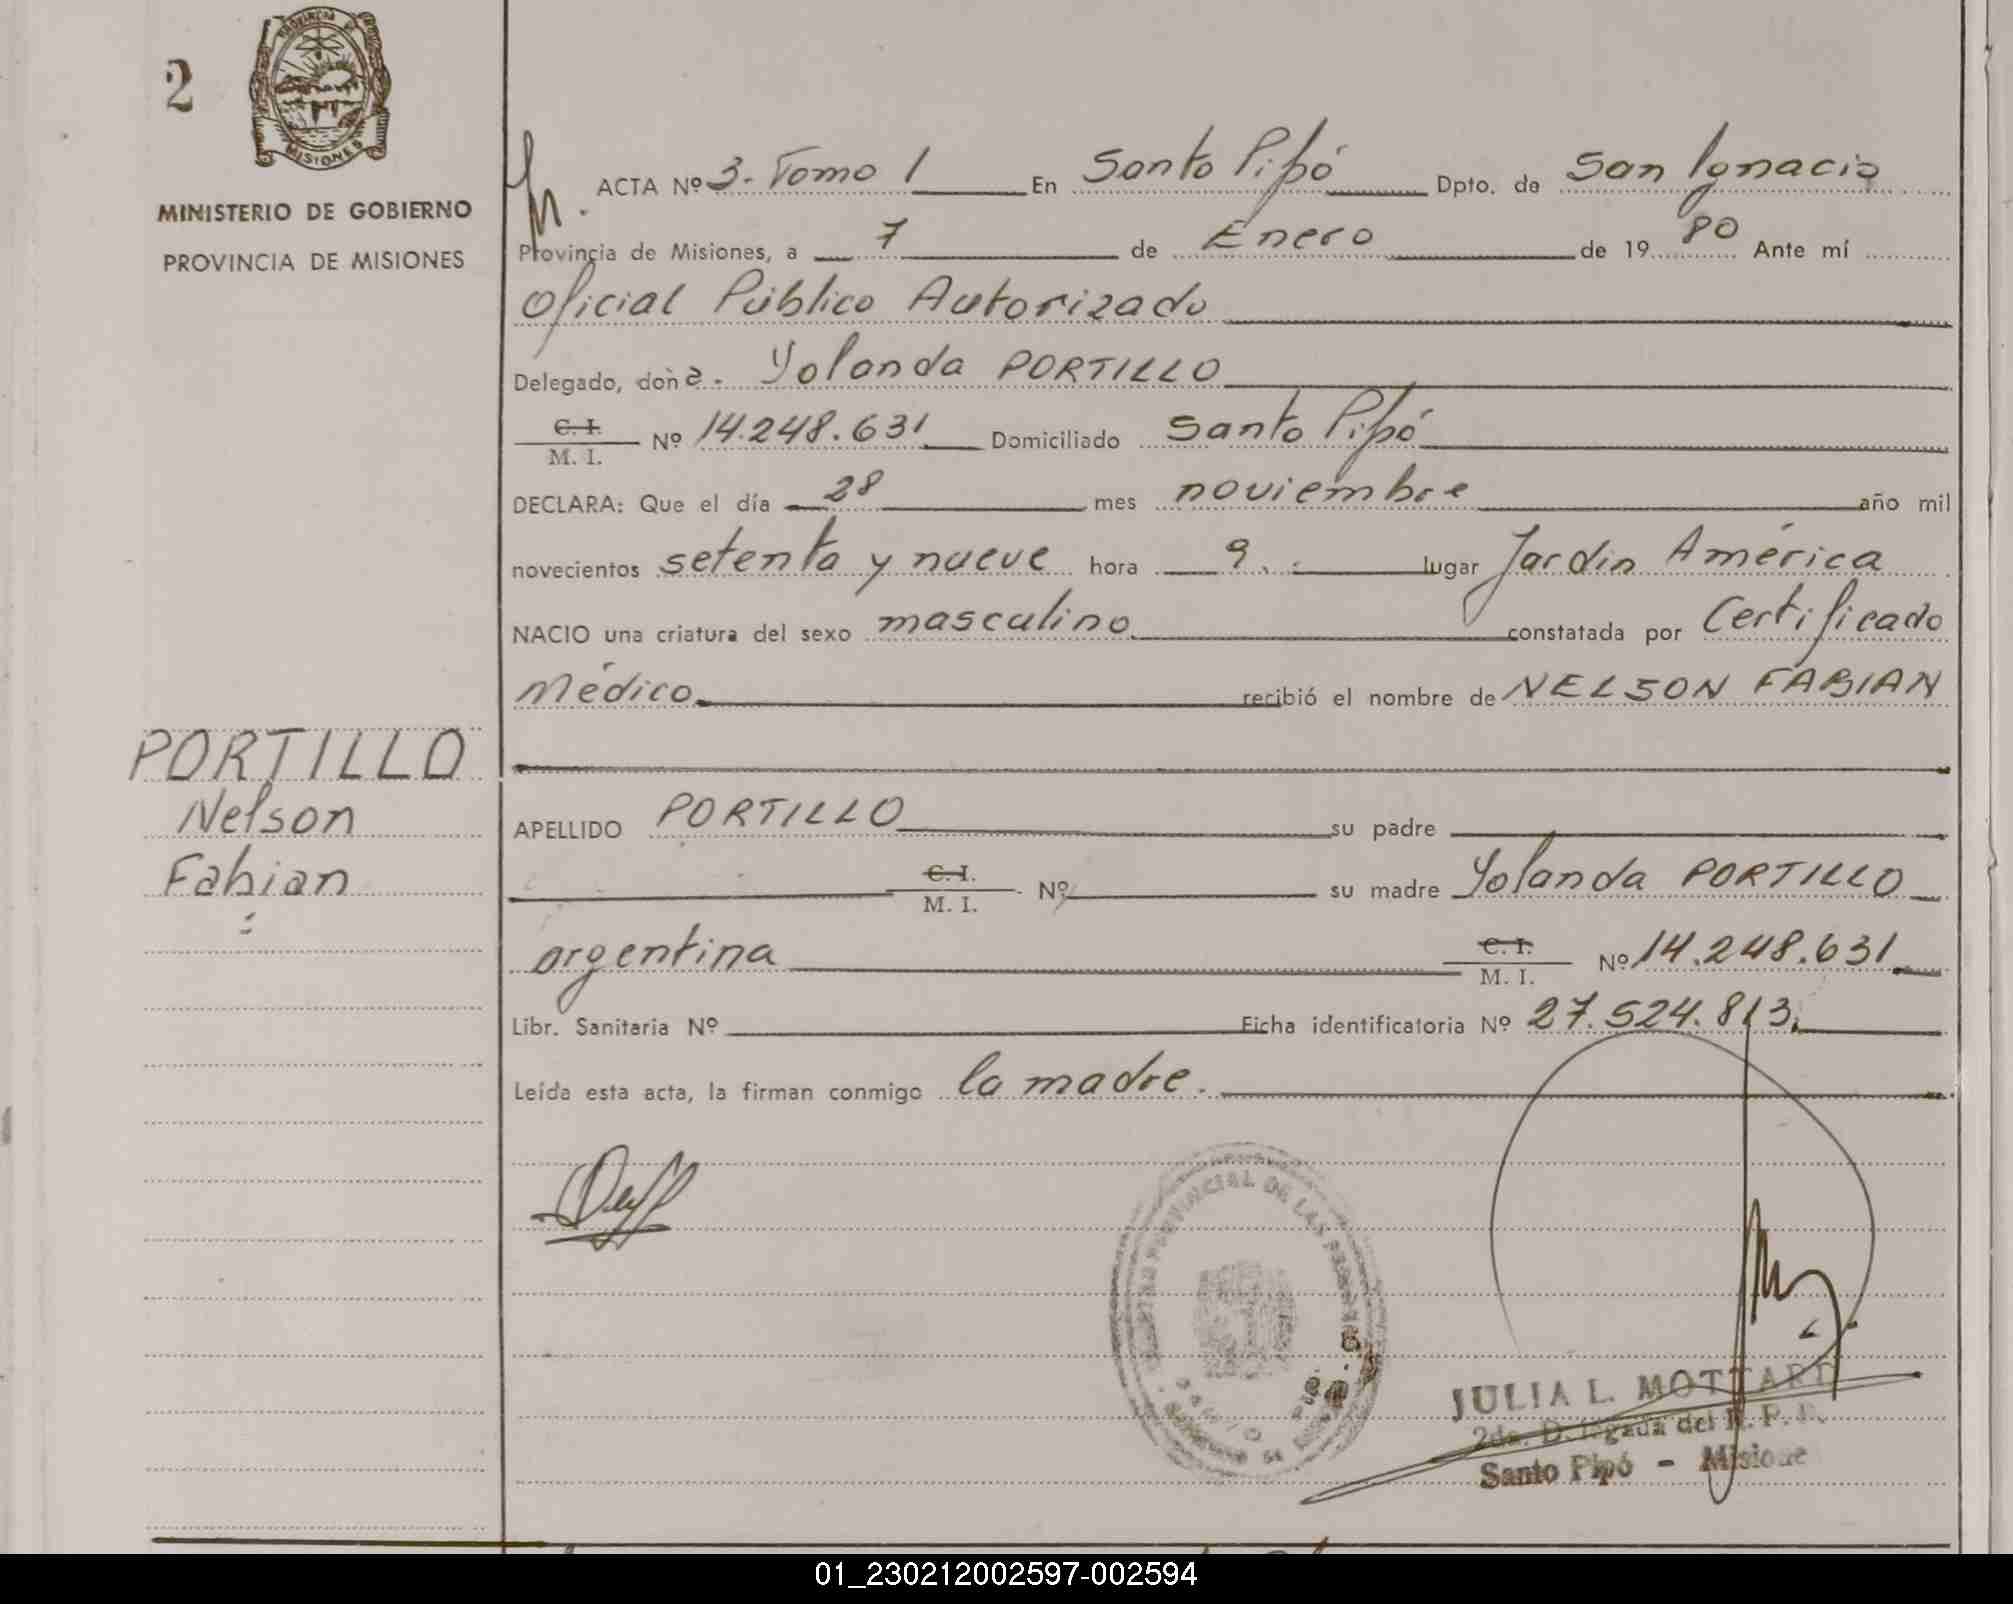 2
PROVINCIA DE
MISIONES
MINISTERIO DE GOBIERNO
PROVINCIA DE MISIONES
PORTILLO
Nelson
Fabian
ACTA Nº 3. Tomo I En Santo Pipó Dpto. de San Ignacio
Provincia de Misiones, a 7 de Enero de 19 80 Ante mí
Oficial Público Autorizado
Delegado, doña. Yolanda PORTILLO
C. I.
M. I. Nº 14.248.631 Domiciliado Santo Pipó
DECLARA: Que el día 28 mes noviembre año mil
novecientos setenta y nueve hora 9. lugar Jardin América
NACIO una criatura del sexo masculino constatada por Certificado
Médico recibió el nombre de NELSON FABIAN
APELLIDO PORTILLO su padre
C. I.
M. I. Nº su madre Yolanda PORTILLO
argentina C. I.
M. I. Nº 14.248.631
Libr. Sanitaria Nº Ficha identificatoria Nº 27.524.813.
Leída esta acta, la firman conmigo la madre.
PROVINCIAL DE LAS
JULIA L. MOTTARD
2da. Delegada del R. P. P.
Santo Pipó - Misiones
01_230212002597-002594